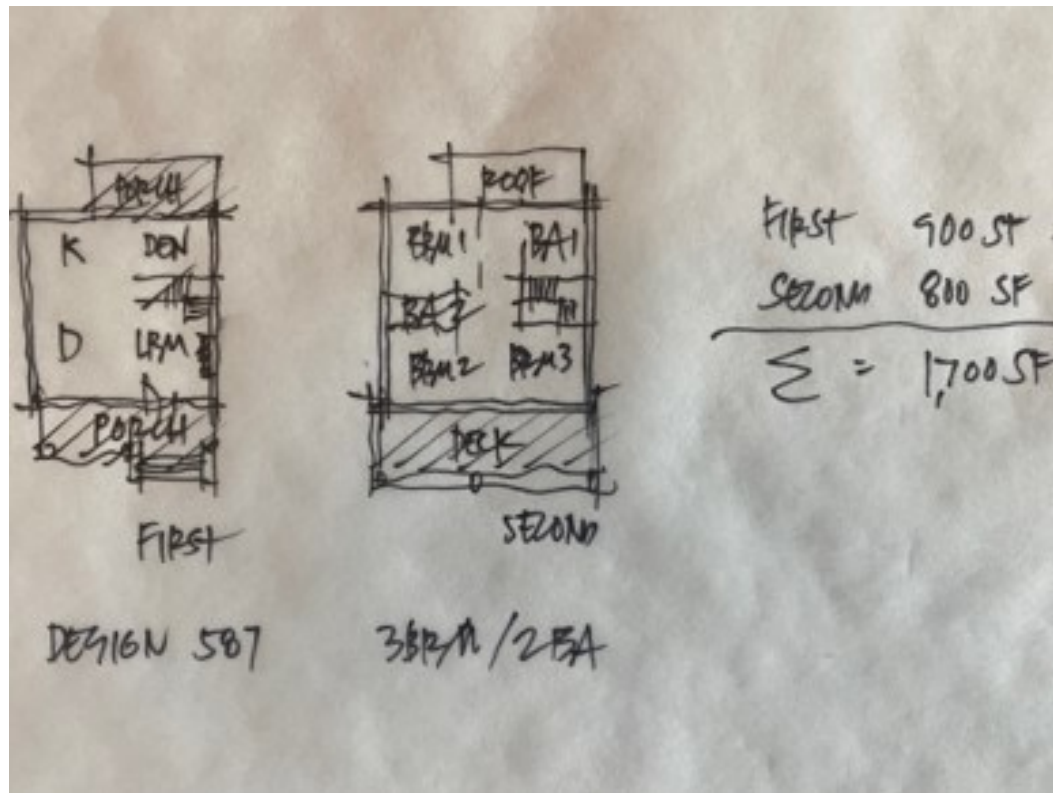 PORCH
K DEN
D LRM
PORCH
FIRST
ROOF
BRM1 BA1
BA2
BRM2 BRM3
DECK
SECOND
FIRST 900 SF
SECOND 800 SF
Σ = 1,700 SF
DESIGN 587
3BRM/2BA